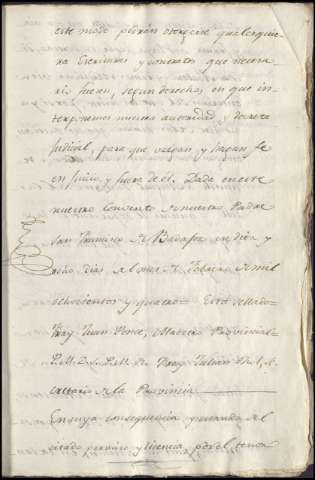 este modo podrán otorgarse qualesquie-
ra Escrituras y contratos que necesa-
rios fueren, segun derecho, en que in-
terponemos nuestra autoridad, y decreto
Judicial, para que valgan, y hagan fe
en juicio, y fuera de el. Dada en este
nuestro Convento de nuestro Padre
San Francisco de Badajoz en diez y
ocho dias del mes de Febrero de mil
ochocientos y quatro = Está sellado =
Fray Juan Perez, Ministro Provincial =
P. M. D. S. P. M. R. Fray Julian Se-
cretario de la Provincia
En cuya consequencia, y usando del
citado permiso y licencia, por el tenor